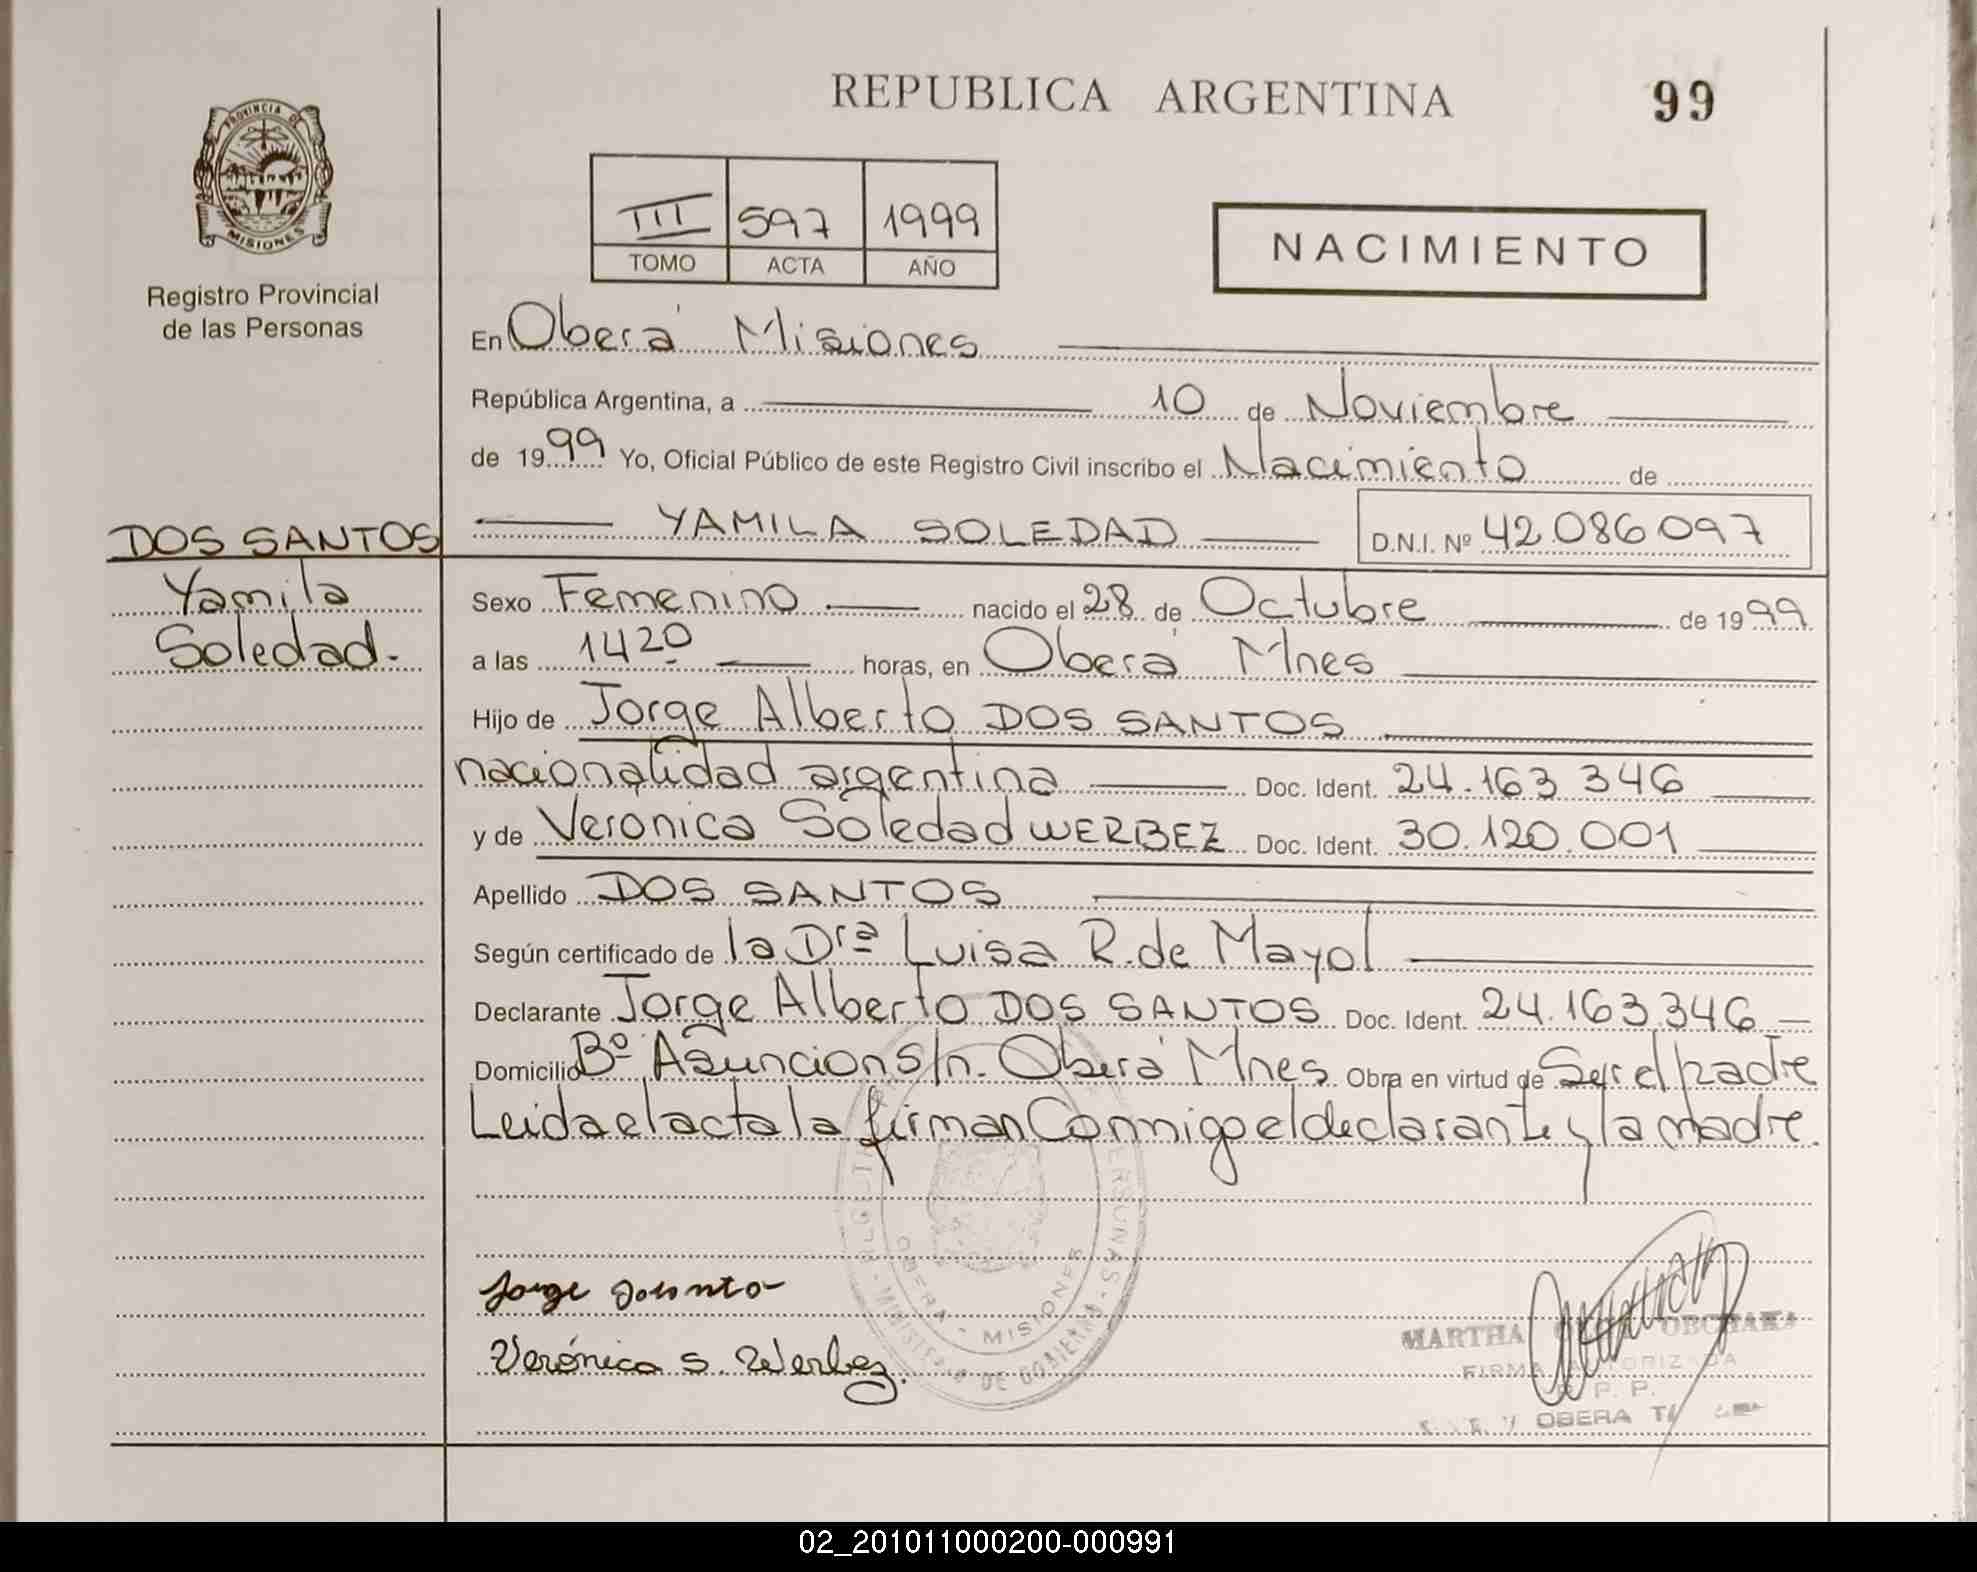 REPUBLICA ARGENTINA
99
PROVINCIA DE
MISIONES
Registro Provincial
de las Personas
III 597 1999
TOMO ACTA AÑO
NACIMIENTO
En Oberá Misiones
República Argentina, a 10 de Noviembre
de 1999 Yo, Oficial Público de este Registro Civil inscribo el Nacimiento de
YAMILA SOLEDAD D.N.I. Nº 42.086.097
DOS SANTOS
Yamila
Soledad.-
Sexo Femenino nacido el 28 de Octubre de 1999
a las 1420 horas, en Oberá Mnes
Hijo de Jorge Alberto DOS SANTOS
nacionalidad argentina Doc. Ident. 24.163 346
y de Veronica Soledad WERBEZ Doc. Ident. 30.120.001
Apellido DOS SANTOS
Según certificado de la Drª Luisa R. de Mayol
Declarante Jorge Alberto DOS SANTOS Doc. Ident. 24.163.346
Domicilio Bº Asuncion s/n. Oberá Mnes Obra en virtud de Ser el padre
Leida el acta la firman Conmigo el declarante y la madre.
OBERA - MISIONES
MINISTERIO DE GOBIERNO
Verónica S. Werbez.
MARTHA
FIRMA AUTORIZADA
R. P. P.
OBERA
02_201011000200-000991